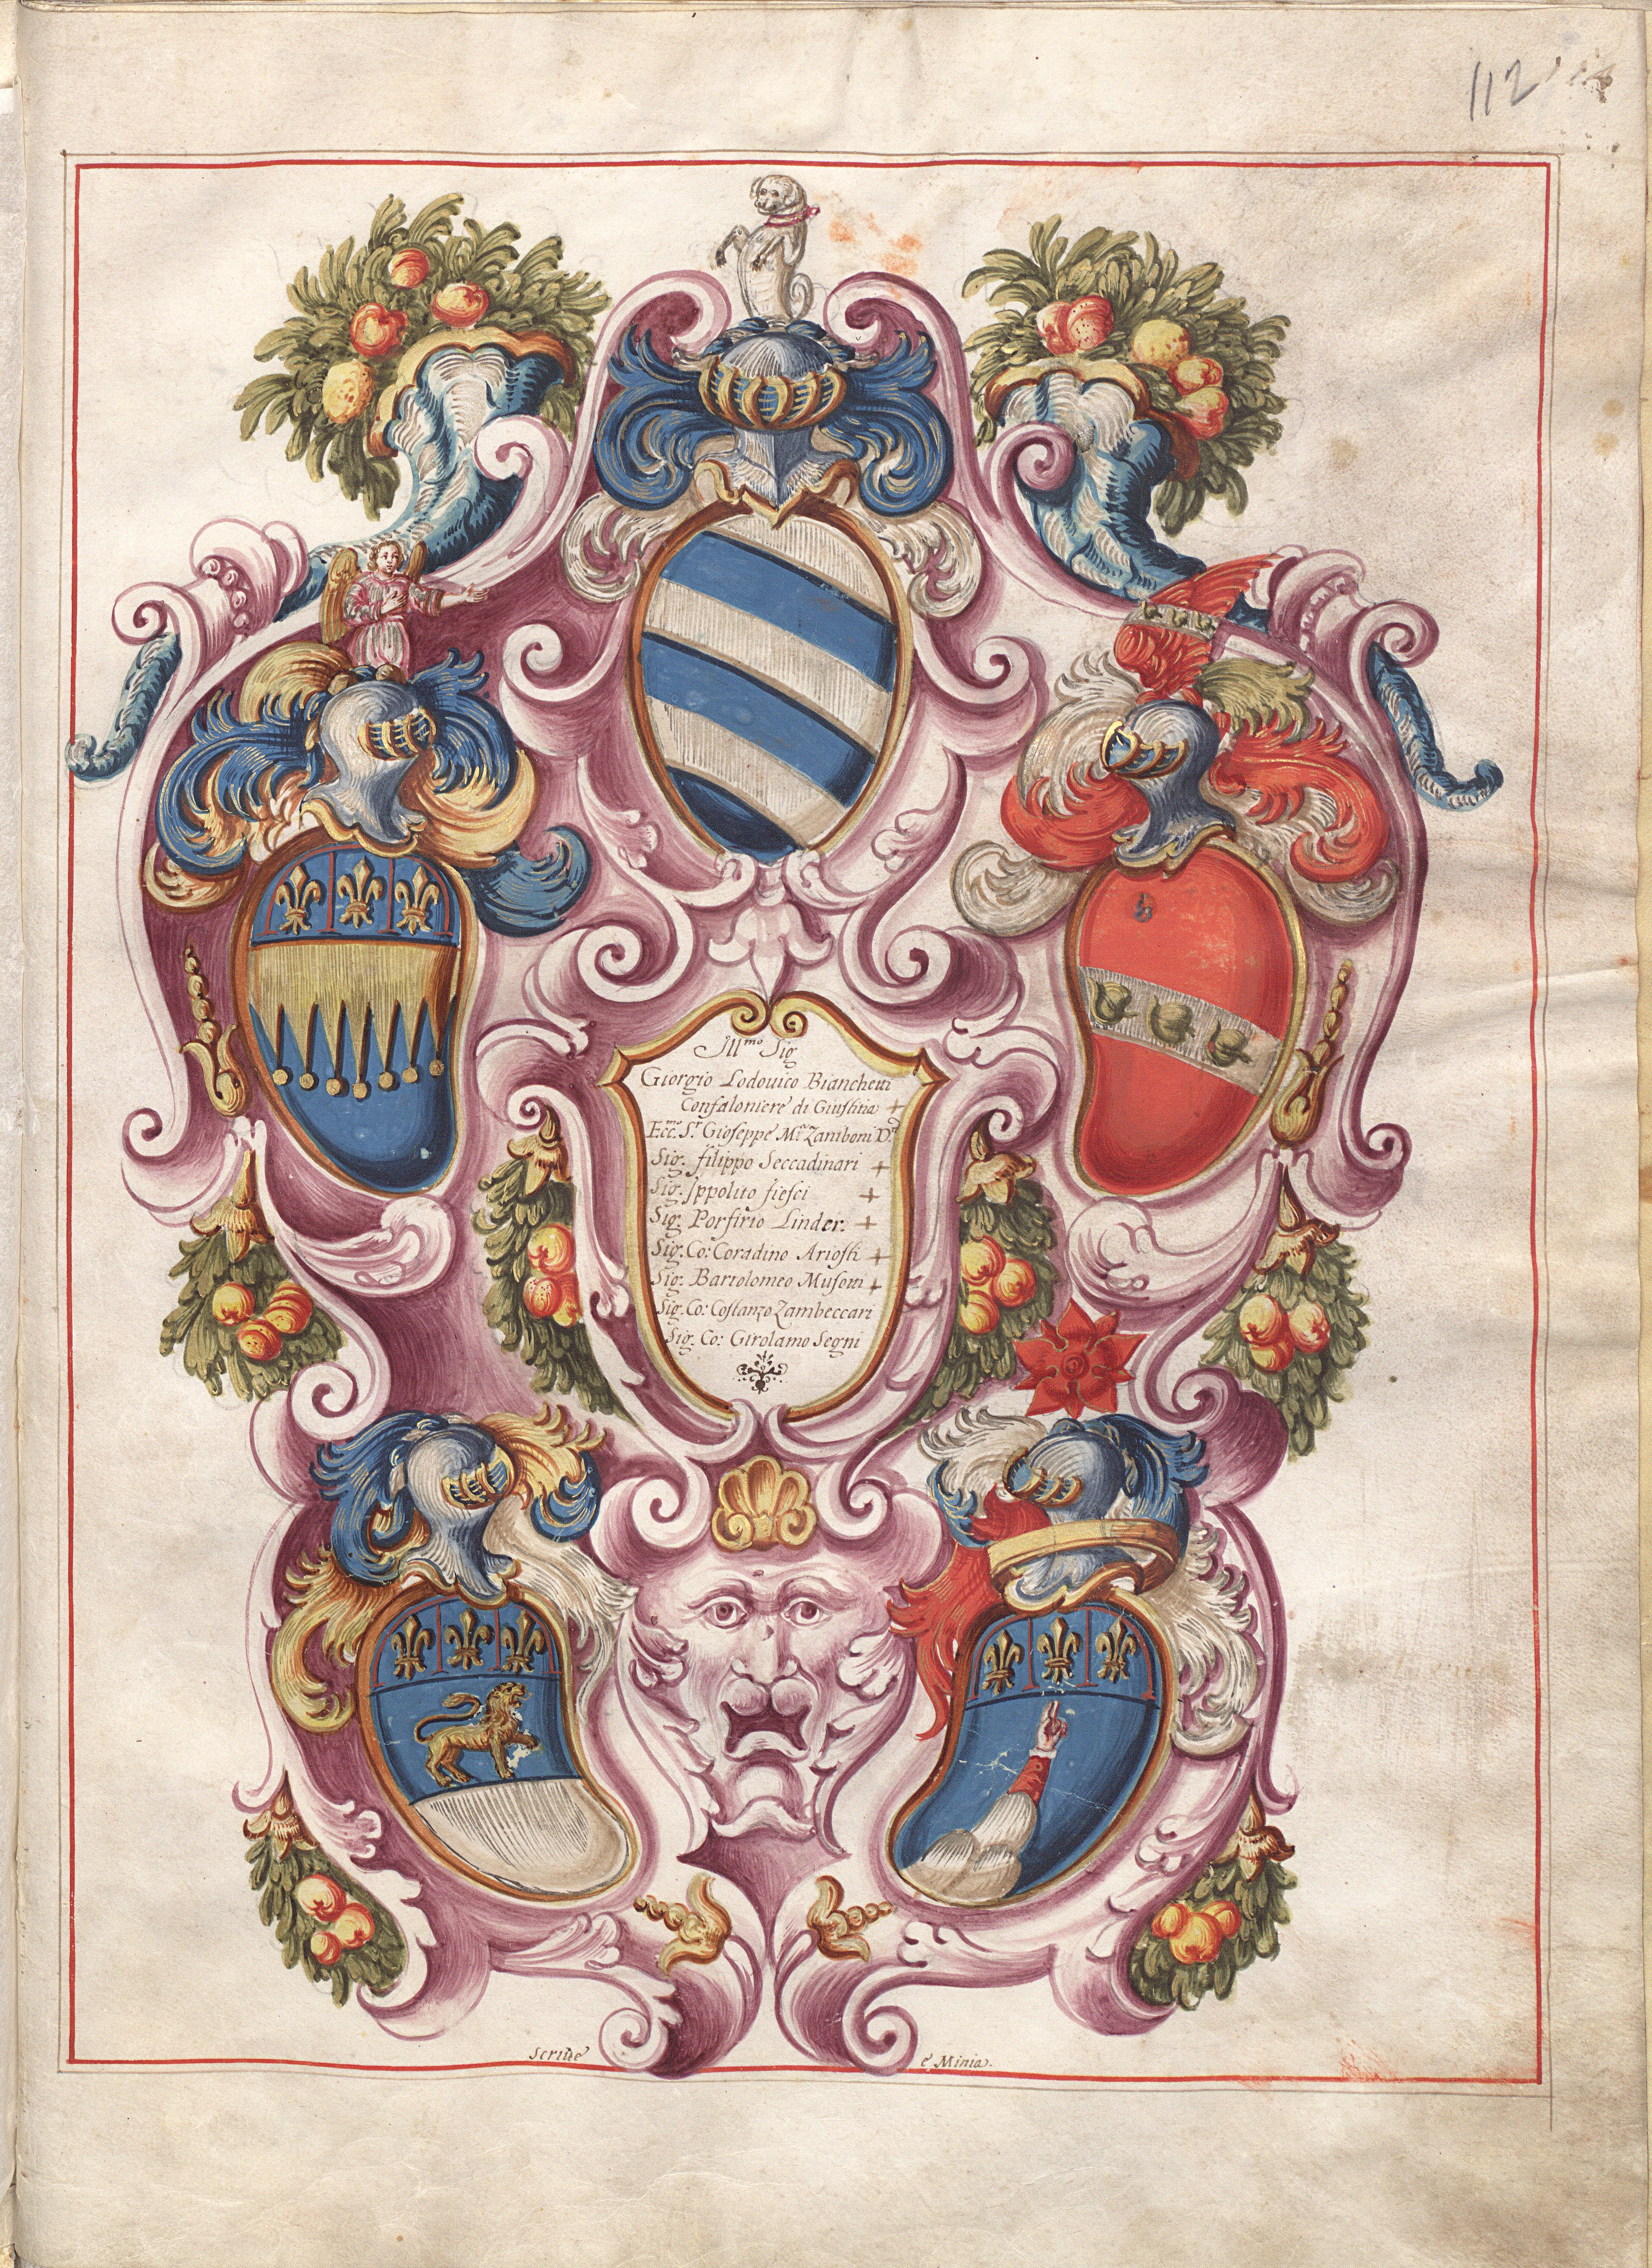 112
Ill.mo Sig
Giorgio Lodouico Bianchetti
Confaloniere di Giustitia +
Ecc.mo S.r Gioseppe M.a Zamboni D.r
Sig. filippo Seccadinari +
Sig. Ippolito fiesci +
Sig. Porfirio Linder. +
Sig. Co: Coradino Ariosti +
Sig. Bartolomeo Musotti +
Sig. Co: Costanzo Zambeccari
Sig. Co: Girolamo Segni
Scriue e Minia.